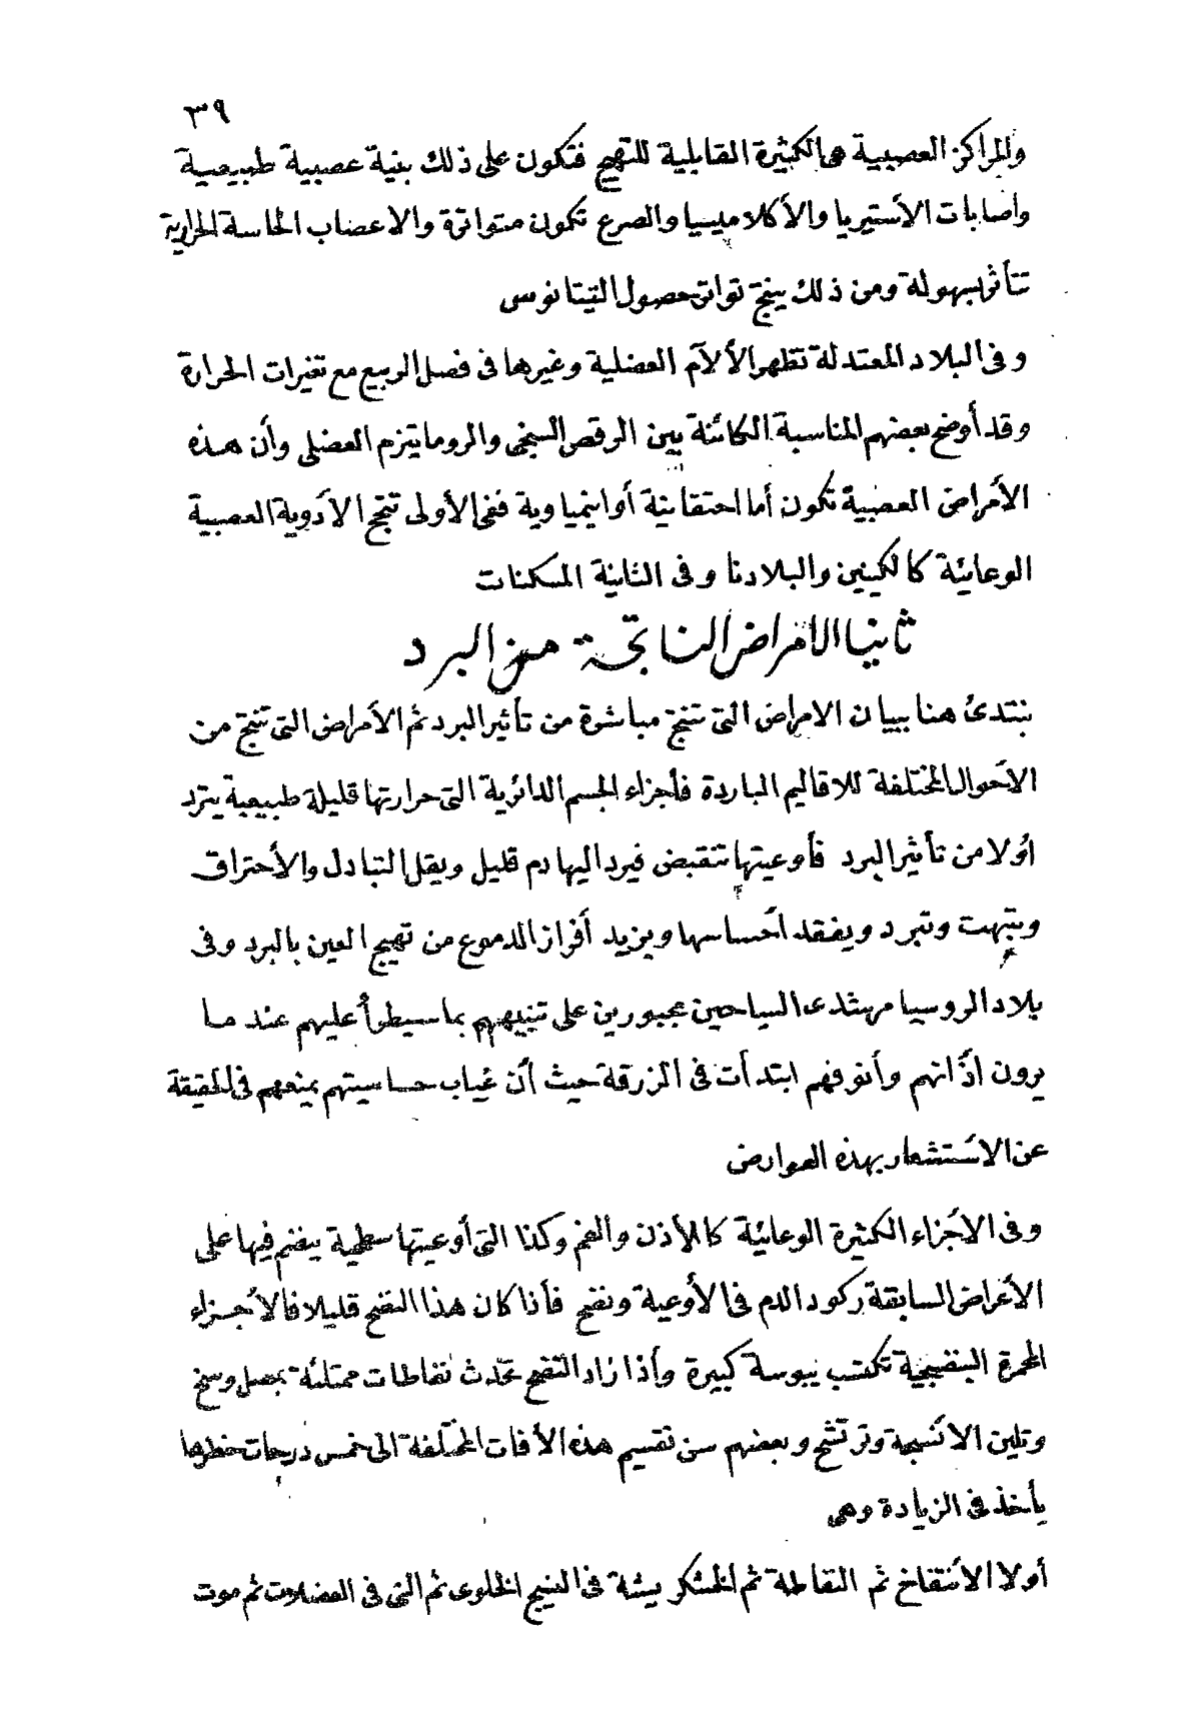 ٣٩
والمراكز العصبية هى الكثيرة القابلية للتهيج فتكون على ذلك بنية عصبية طبيعية
واصابات الأستيريا والأكلامبسيا والصرع تكون متواترة والاعصاب الحاسة الحرارية
تتأثر بسهولة ومن ذلك ينتج تواتر حصول التيتانوس
وفى البلاد المعتدلة تظهر الألآم العضلية وغيرها فى فصل الربيع مع تغيرات الحرارة
وقد أوضح بعضهم المناسبة الكائنة بين الرقص السنجى والروماتيزم العضلى وأن هذه
الأمراض العصبية تكون أما احتقانية أو انيمياوية ففى الأولى تنجح الأدوية العصبية
الوعائية كالكينين والبلادنا وفى الثانية المسكنات
ثانيا الامراض الناتجة من البرد
بنتدئ هنا ببيان الامراض التى تنتج مباشرة من تأثير البرد ثم الأمراض التى تنتج من
الأحوال المختلفة للاقاليم الباردة فأجزاء الجسم الدائرية التى حرارتها قليلة طبيعية يتردد
أولا من تأثير البرد فأوعيتها تنقبض فيرد اليها دم قليل ويقل التبادل والأحتراق
وتبهت وتبرد ويفقد أحساسها ويزيد أفراز الدموع من تهيج العين بالبرد وفى
بلاد الروسيا مرشدى السياحين مجبورين على تنبيههم بما سيطرأ عليهم عند ما
يرون اذانهم وأنوفهم ابتدأت فى الزرقة حيث أن غياب حساسيتهم يمنعهم فى الحقيقة
عن الاستشعار بهذه العوارض
وفى الاجزاء الكثيرة الوعائية كالأذن والفم وكذا التى أوعيتها سطحية ينضم فيها على
الأعراض السابقة ركود الدم فى الأوعية ونضح فأذا كان هذا النضح قليلا فالأجزاء
المحمرة البنفسجية تكتسب يبوسة كبيرة وأذا زاد النضح تحدث نفاطات ممتلئة بمصل وسخ
وتلين الانسجة وترتشح وبعضهم سن تقسيم هذه الأفات المختلفة الى خمس درجات خطرها
يأخذ فى الزيادة وهى
أولا الأنتفاخ ثم النفاطة ثم الخشكريشة فى النسيج الخلوى ثم التى فى العضلات ثم موت